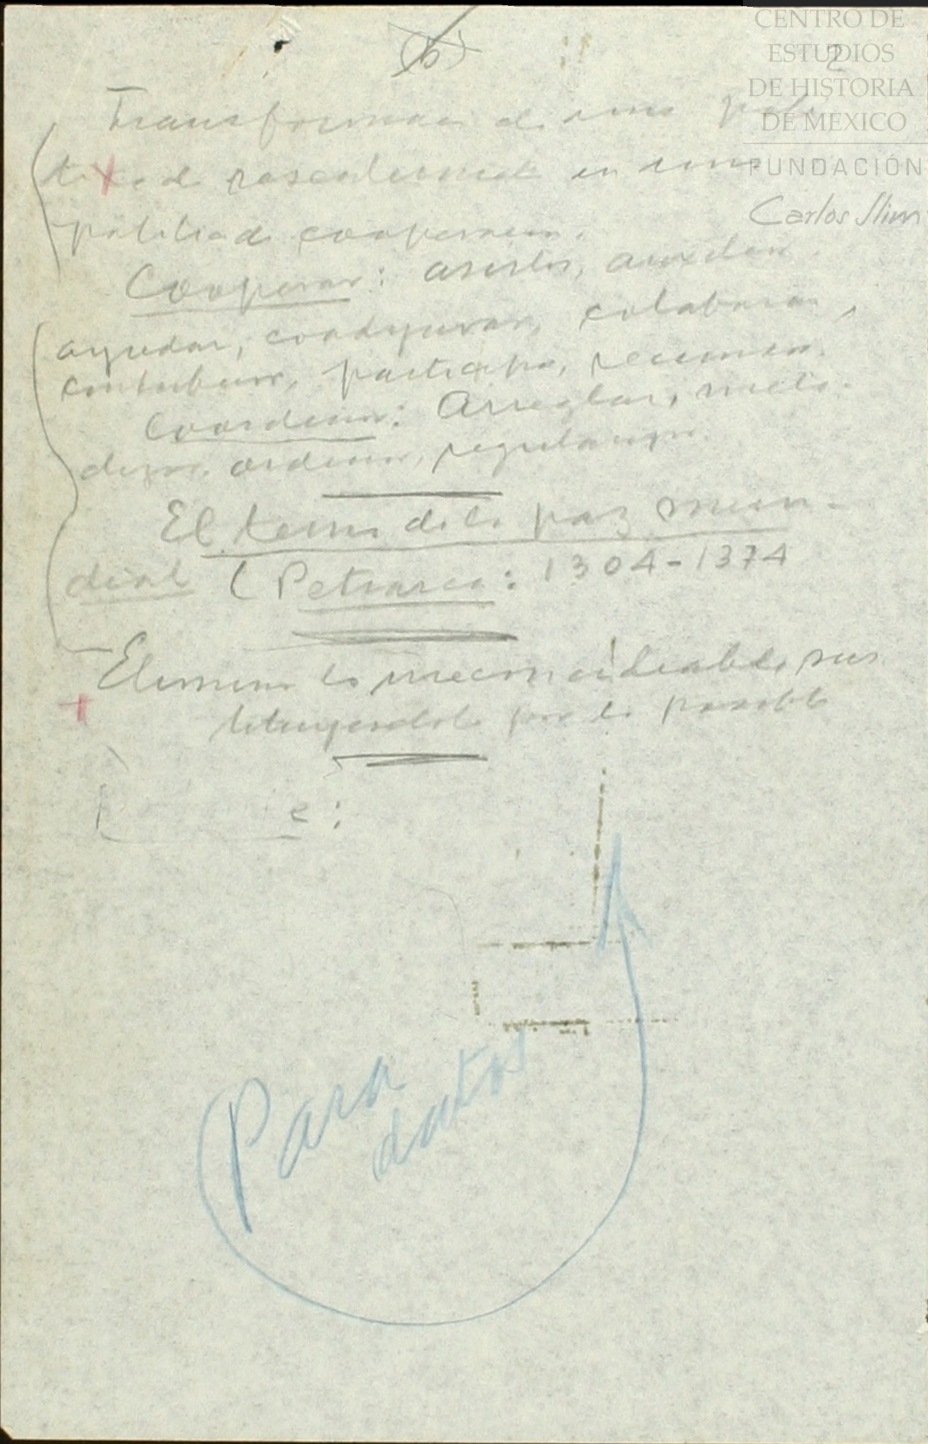 (6)
2
CENTRO DE
ESTUDIOS
DE HISTORIA
DE MEXICO
FUNDACIÓN
Carlos Slim
Transformación de una polí
tica de en una
política de cooperación.
Cooperar: asistir, auxiliar
ayudar, coadyuvar, colaborar,
contribuir, participar,
Coordinar: Arreglar, meto-
dizar. ordenar, regularizar.
El tema de la paz mun-
dial (Petrarca: 1304-1374
Eliminar lo sus
tituyendolo por lo posible
Para
datos